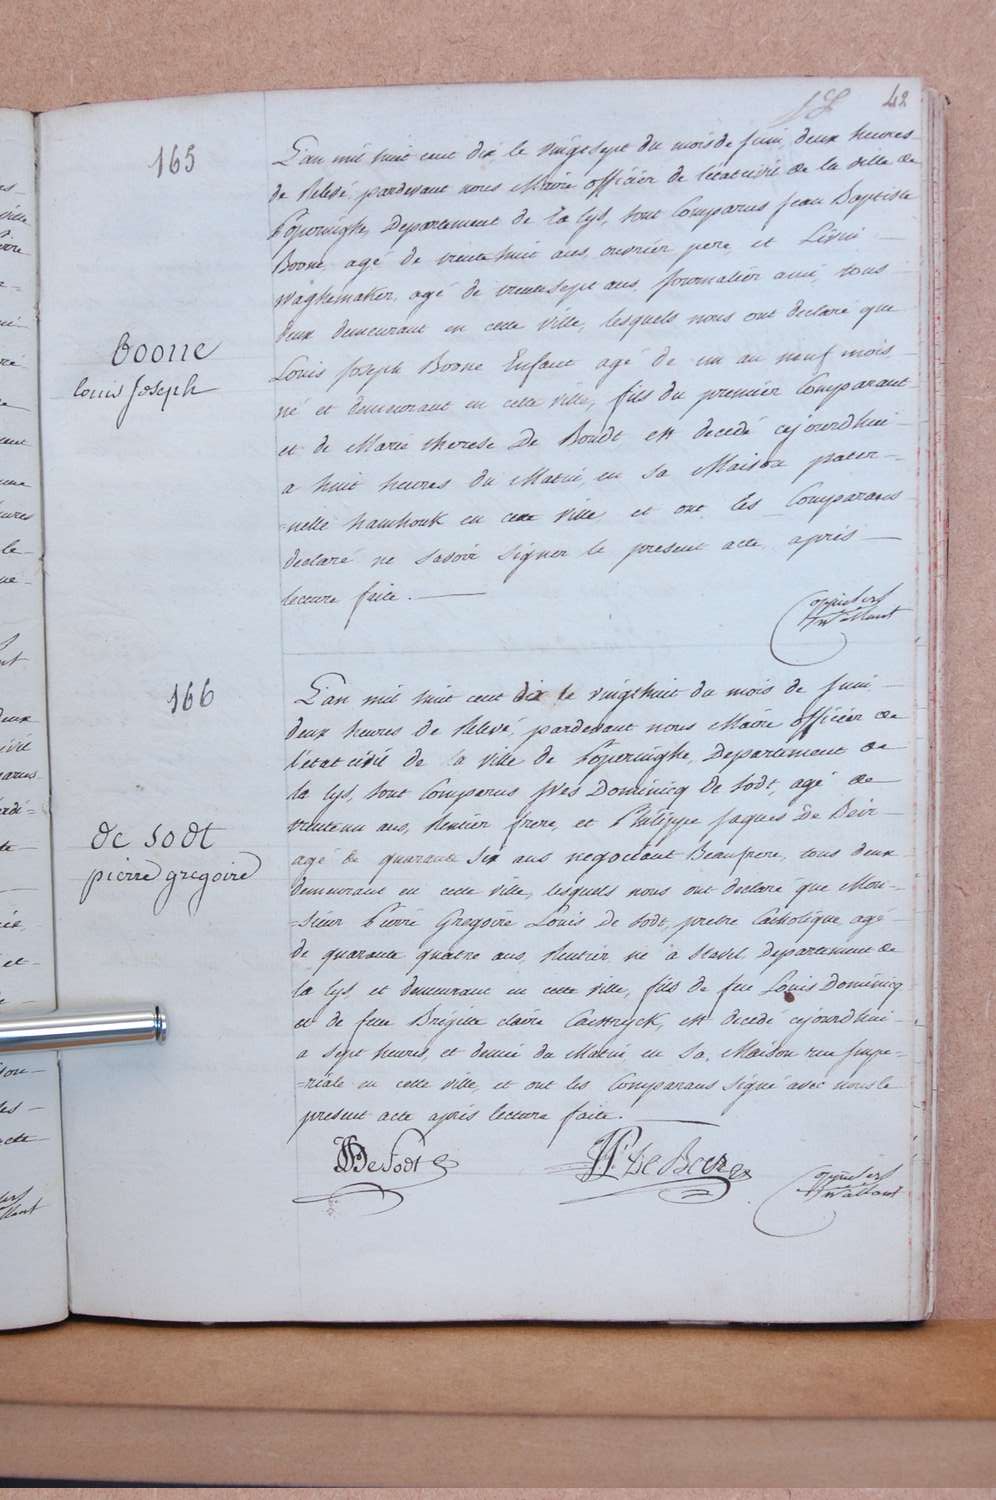 42
165
L'an mil huit cent dix le vingt sept du mois de Juin, deux heures
de Relevé, pardevant nous Maire officier de l'état civil de la ville de
Poperinghe, Departement de la Lys, sont Comparus Jean Baptiste
Boone, agé de trente huit ans, ouvrier pere, et Livin
Waghemaker, agé de trente sept ans, Journalier ami, tous
deux demeurant en cette ville, lesquels nous ont declaré que
Boone
louis Joseph
Louis Joseph Boone Enfant agé de un an neuf mois
né et demeurant en cette ville, fils du premier Comparant
et de Marie therese De Boudt est decedé cejourdhui
a huit heures du Matin, en sa Maison pater-
=nelle hamhouk en cette ville, et ont les Comparans
declaré ne savoir signer le present acte, après
lecture faite.
166
L'an mil huit cent dix le vingthuit du mois de Juin
deux heures de Relevé, pardevant nous Maire officier de
l'état civil de la ville de Poperinghe, Departement de
la Lys, sont Comparus Yves Dominicq de Sodt, agé de
trente un ans, Rentier frere, et Philippe Jaques De Beir
de Sodt
pierre gregoire
agé de quarante six ans negociant Beaufrere, tous deux
demeurant en cette ville, lesquels nous ont declaré que Mon-
=sieur Pierre Gregoire Louis de Sodt, pretre Catholique agé
de quarante quatre ans, Rentier né à Stavel Departement de
la Lys, et demeurant en cette ville, fils de feu Louis Dominicq
et de feue Brigitte Claire Caestryck, est decedé cejourdhui
a sept heures, et demie du Matin, en sa Maison rue Impe-
=riale en cette ville, et ont les Comparans signé avec nous le
present acte après lecture faite.
De Sodt
De Beir